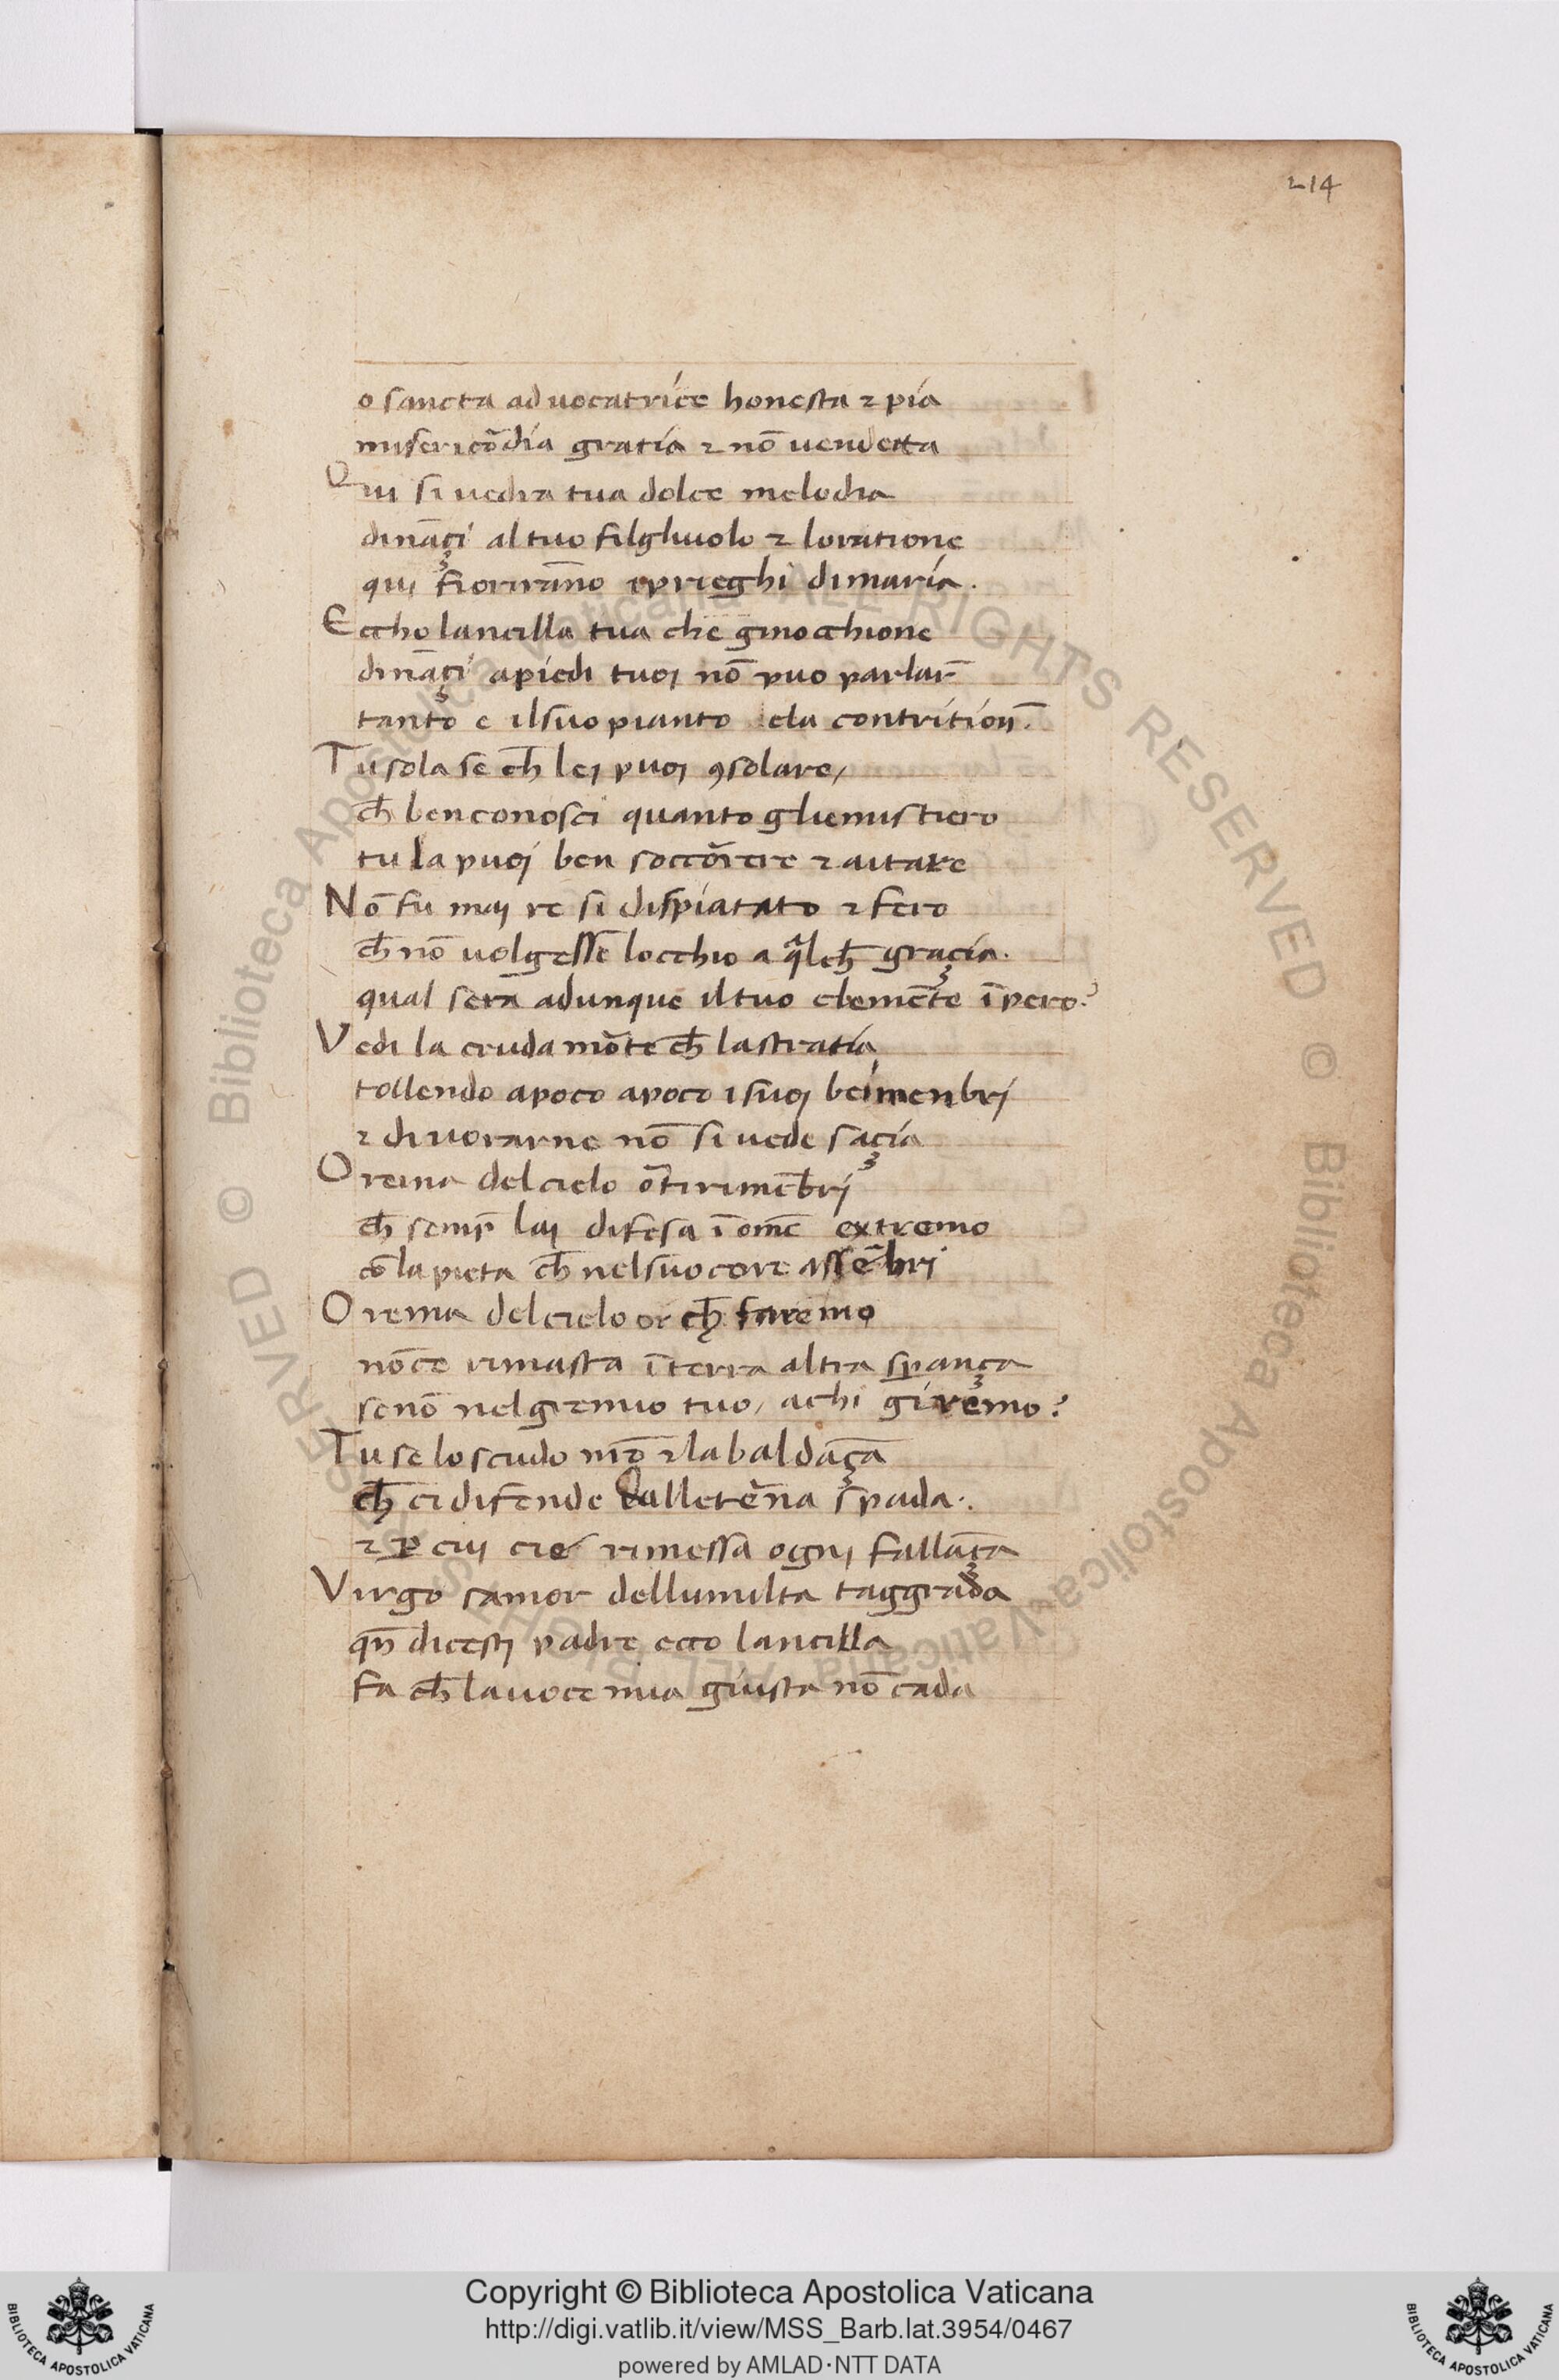 214
o sancta aduocatrice honesta ⁊ pia
misericōdia gratia ⁊ nō uendetta
Qui si uedra tua dolce melodia
dināçi al tuo filghuolo ⁊ loratione
qui fiorirāno i prieghi di maria.
Eccho lancilla tua che ginocchione
dināçi apiedi tuoi nō puo parlar̄
tanto e ilsuo pianto ela contrition̄.
Tu sola se ch̄ lei puoi ꝯsolare/
ch̄ ben conosci quanto gliemistiero
tu la puoi ben soccōrere ⁊ aitare
Nō fu mai re si dispiatato ⁊ fero
ch̄ nō uolgesse locchio a q̄lch̄ graçia.
qual sera adunque il tuo clemēte īpero?
Vedi la cruda mōte ch̄ lastratia
tollendo apoco apoco isuoi bei menbri
⁊ diuorarne nō si uede saçia
O reina del cielo ōti rimēbri
ch̄ semp̄ lai difesa ī omē extremo
cō la pieta ch̄ nelsuo core assēbri
O reina del cielo or ch̄ faremo
nōce rimasta īterra altra sperança
senō nel gremio tuo/ achi giremo?
Tu se lo scudo nr̄o ⁊ la baldāça
ch̄ ci difende dalletēna spada.
⁊ ꝑ cui cie rimessa ogni fallāça
Virgo samor dellumilta taggrada
qn̄ dicesti padre ecco lancilla
fa ch̄ lauoce mia giusta nō cada
Biblioteca Apostolica Vaticana ALL RIGHTS RESERVED ©
Copyright © Biblioteca Apostolica Vaticana
http://digi.vatlib.it/view/MSS_Barb.lat.3954/0467
powered by AMLAD·NTT DATA
BIBLIOTECA APOSTOLICA VATICANA
BIBLIOTECA APOSTOLICA VATICANA